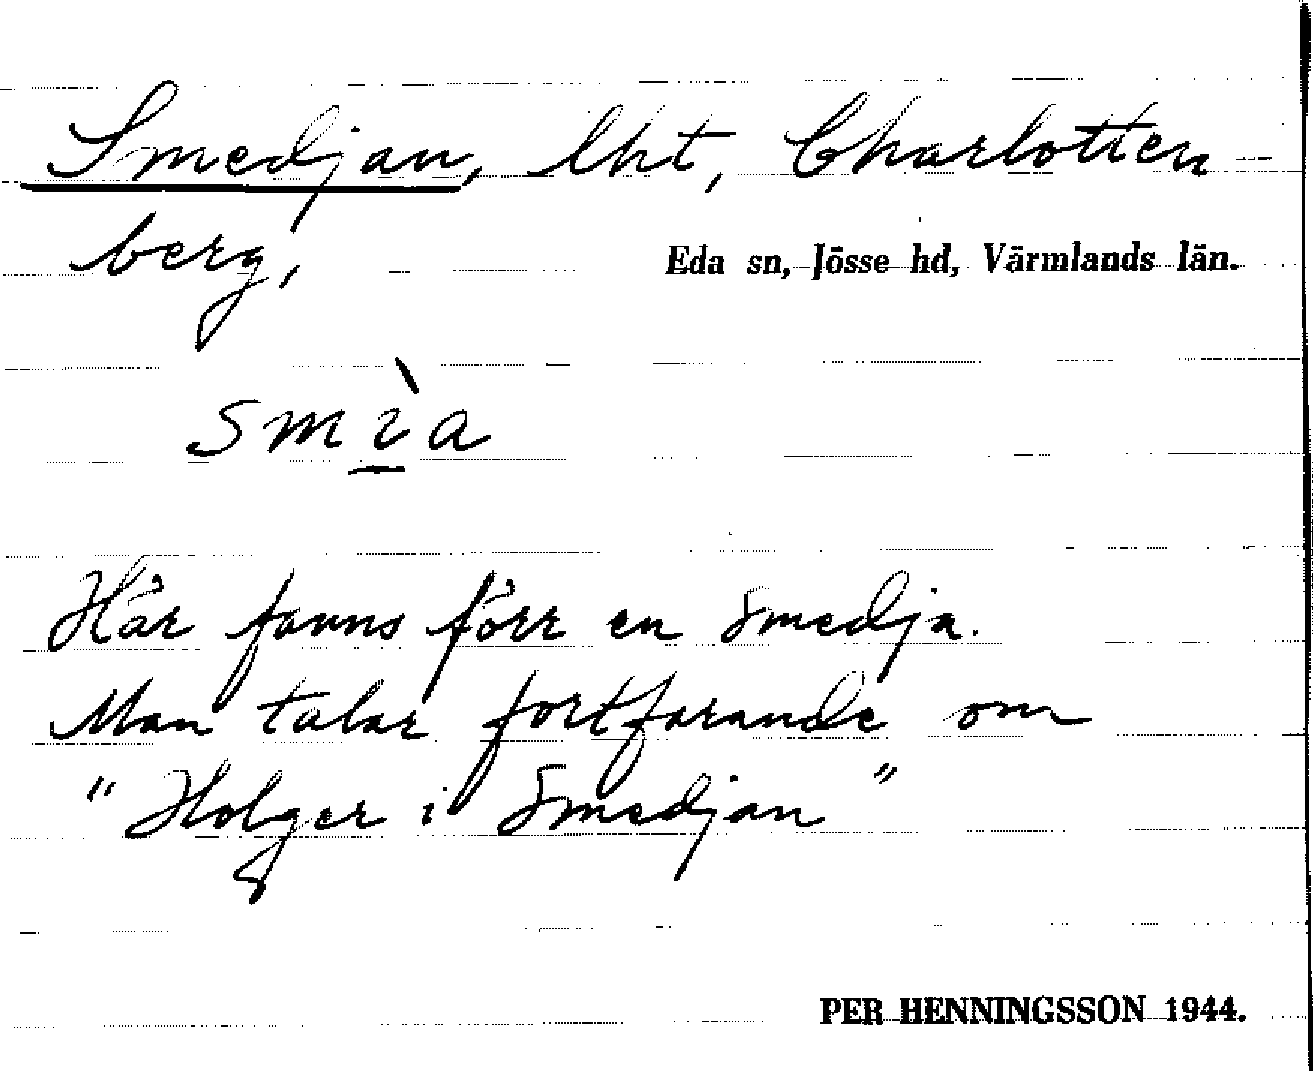 Smedjan, lht, Charlotten-
berg,
Eda sn, Jösse hd, Värmlands län.
smìa
Här fanns förr en smedja.
Man talar fortfarande om
"Holger i Smedjan"
PER HENNINGSSON 1944.